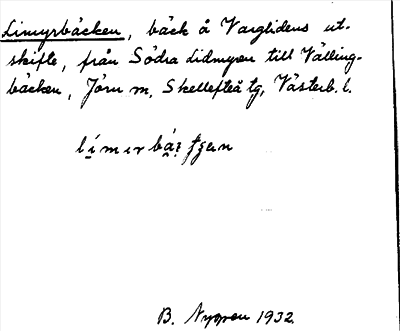 Limyrbäcken, bäck å Varglidens ut-
skifte, från Södra Lidmyren till Välling-
bäcken, Jörn sn, Skellefteå tg, Västerb. l.
B. Nygren 1932.